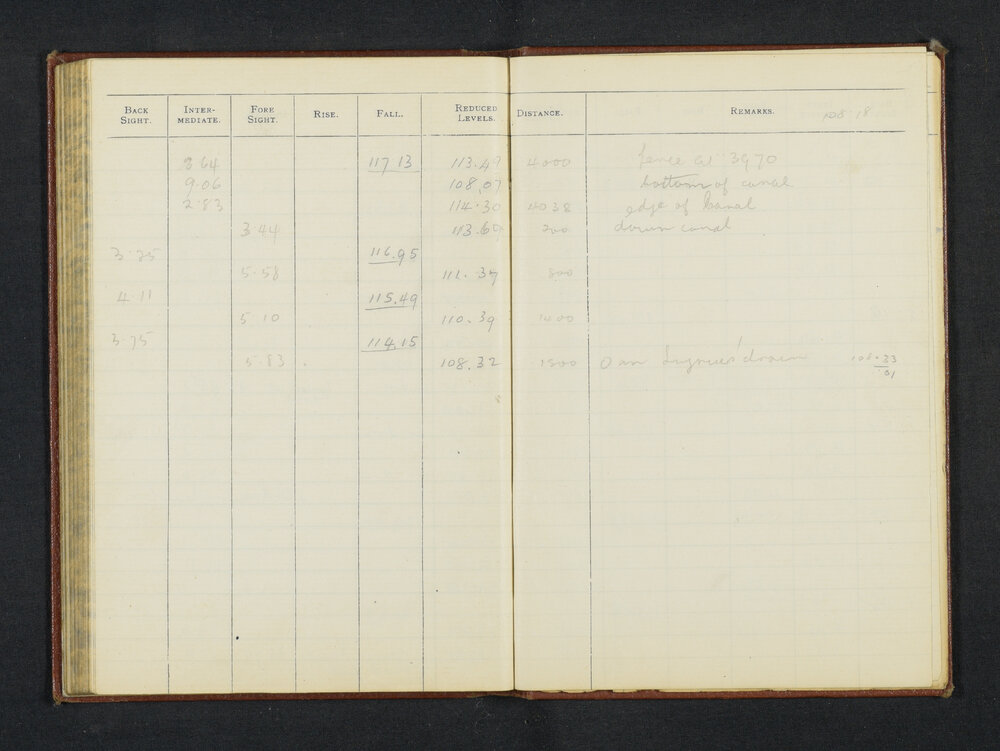 BACK SIGHT. INTER-MEDIATE. FORE SIGHT. RISE. FALL. REDUCED LEVELS. DISTANCE. REMARKS. 108.18
3.64 117.13 113.49 4000 fence at 3970
9.06 108.07 bottom of canal
2.83 114.30 4038 edge of canal
3.44 113.69 200 down canal
3.25 116.95
5.58 111.37 800
4.11 115.49
5.10 110.39 1400
3.75 114.15
5.83 108.32 1800 drain 108.33
.01